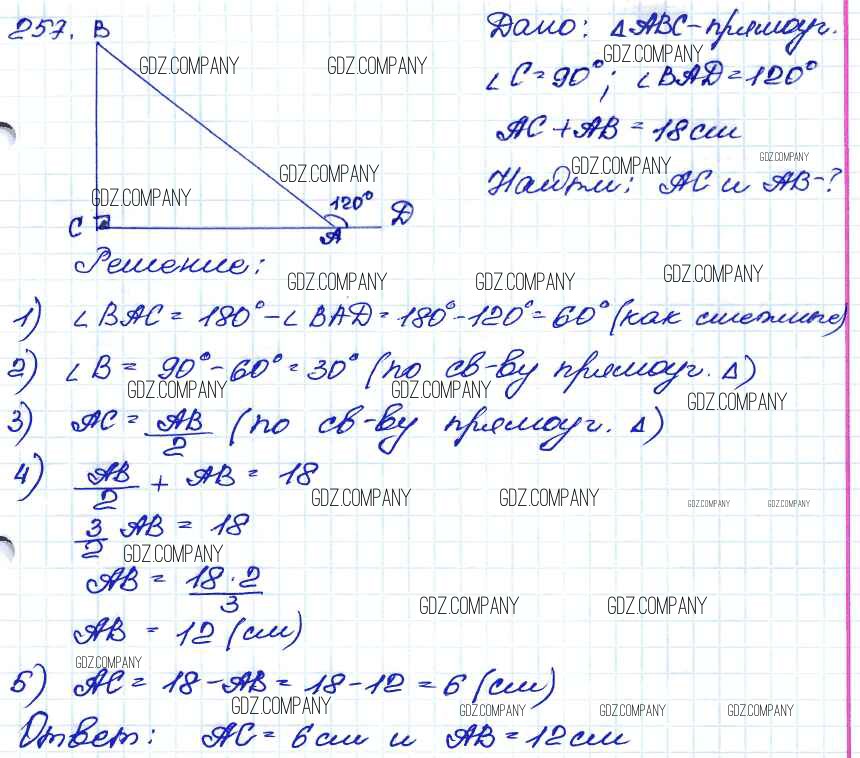 257. B
Дано: ΔABC-прямоуг.
GDZ.COMPANY GDZ.COMPANY GDZ.COMPANY
∠C=90°; ∠BAD=120°
AC+AB=18см
GDZ.COMPANY GDZ.COMPANY GDZ.COMPANY
Найти: AC и AB-?
GDZ.COMPANY
120° D
C A
Решение:
GDZ.COMPANY GDZ.COMPANY GDZ.COMPANY
1) ∠BAC = 180°-∠BAD=180°-120°=60° (как смежные)
2) ∠B = 90°-60°=30° (по св-ву прямоуг. Δ)
GDZ.COMPANY GDZ.COMPANY GDZ.COMPANY
3) AC = AB/2 (по св-ву прямоуг. Δ)
4) AB/2 + AB = 18
GDZ.COMPANY GDZ.COMPANY GDZ.COMPANY GDZ.COMPANY
3/2 AB = 18
GDZ.COMPANY
AB = 18·2/3
GDZ.COMPANY GDZ.COMPANY
AB = 12 (см)
GDZ.COMPANY
5) AC = 18-AB = 18-12 = 6 (см)
GDZ.COMPANY GDZ.COMPANY GDZ.COMPANY GDZ.COMPANY
Ответ: AC=6см и AB=12см